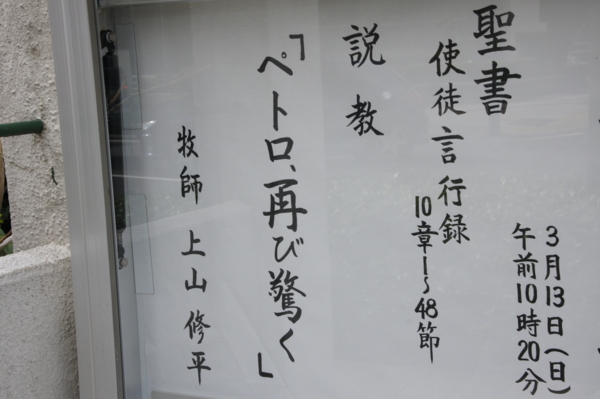 3月13日(日)
午前10時20分
聖書
使徒言行録
10章1~48節
説教
「ペトロ、再び驚く」
牧師 上山修平